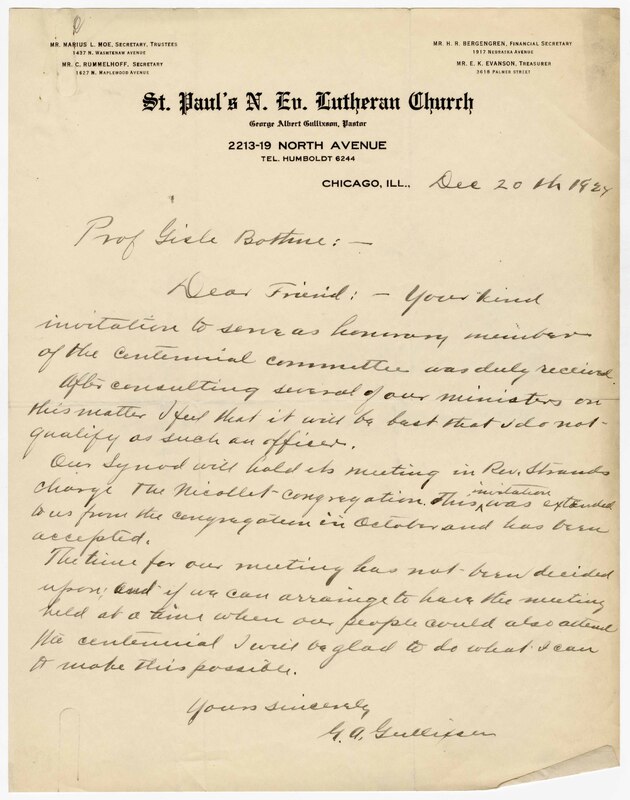 MR. MARIUS L. MOE, SECRETARY, TRUSTEES
1427 N. WASHTENAW AVENUE
MR. C. RUMMELHOFF, SECRETARY
1627 N. MAPLEWOOD AVENUE
MR. H. R. BERGENGREN, FINANCIAL SECRETARY
1917 NEBRASKA AVENUE
MR. E. K. EVANSON, TREASURER
3618 PALMER STREET
St. Paul's N. Ev. Lutheran Church
George Albert Gullixson, Pastor
2213-19 NORTH AVENUE
TEL. HUMBOLDT 6244
CHICAGO, ILL., Dec 20th 1924
Prof Gisle Bothne: —
Dear Friend: — Your kind
invitation to serve as honorary member
of the centennial committee was duly received.
After consulting several of our ministers on
this matter I feel that it will be best that I do not
qualify as such an officer.
Our Synod will hold its meeting in Rev. Strands
charge the Nicollet congregation. This invitation was extended
to us from the congregation in October and has been
accepted.
The time for our meeting has not been decided
upon; and if we can arrange to have the meeting
held at a time when our people could also attend
the centennial I will be glad to do what I can
to make this possible.
Yours sincerely
G. A. Gullixson